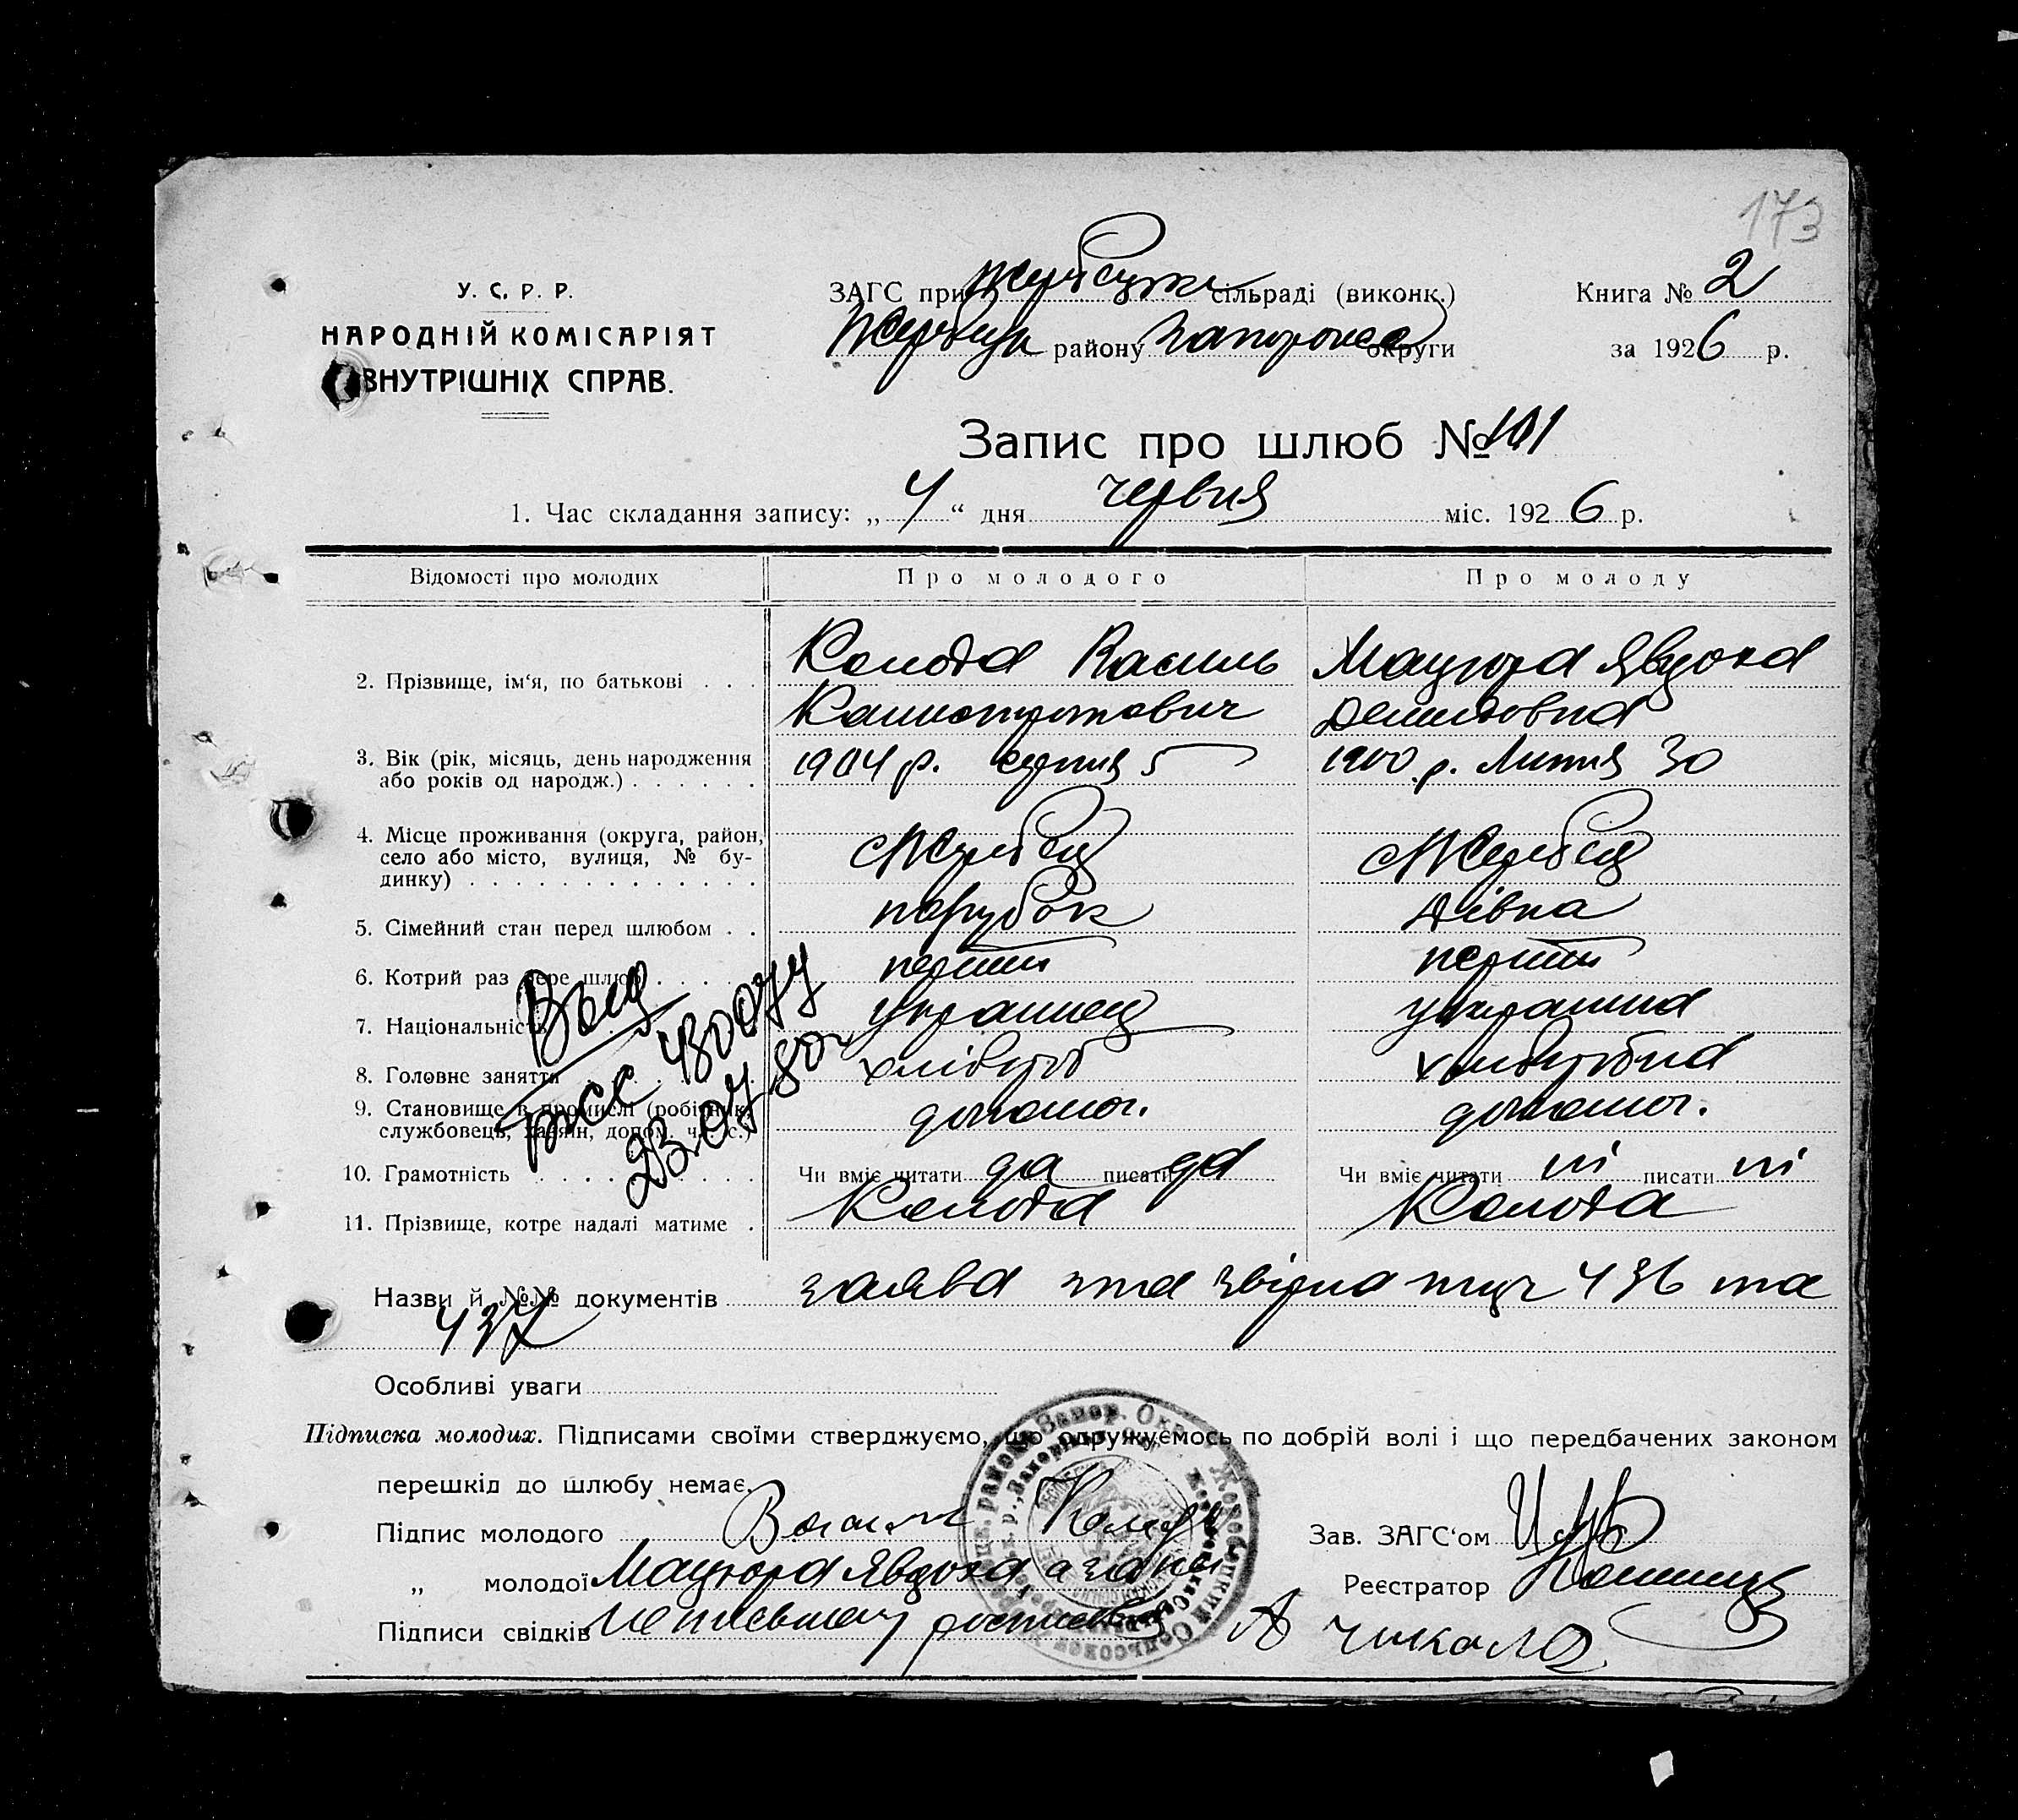 173
У. С. Р. Р.
НАРОДНІЙ КОМІСАРІЯТ
ВНУТРІШНІХ СПРАВ.
ЗАГС при Жеребецькі сільраді (виконк.)
Жеребецьк району Запорожс округи
Книга № 2
за 1926 р.
Запис про шлюб № 101
1. Час складання запису: „ 4 “ дня червня міс. 1926 р.
Відомості про молодих
Про молодого
Про молоду
2. Прізвище, ім‘я, по батькові . . .
Колода Василь
Мацюра Явдоха
Демидовна
3. Вік (рік, місяць, день народження
або років од народж.) . . . . . .
1904 р. серпня 5
1900 р. Липня 30
4. Місце проживання (округа, район,
село або місто, вулиця, № бу-
динку) . . . . . . . . . . . . .
с Жеребец
с Жеребец
5. Сімейний стан перед шлюбом . .
парубок
дівка
6. Котрий раз бере шлюб . . . . .
перший
перший
7. Національність
украинец
украинка
8. Головне заняття
хлібороб
хлиборобка
9. Становище в промислі (робітник,
службовець, хазяїн, допом. ч. с.)
допомог.
допомог.
10. Грамотність . . . . . . . . . .
Чи вміє читати да писати да
Чи вміє читати ні писати ні
11. Прізвище, котре надалі матиме .
Колода
Колода
480077
23.07.80
Назви й №№ документів заява 436 та
437
Особливі уваги
Підписка молодих. Підписами своїми стверджуємо, що одружуємось по добрій волі і що передбачених законом
перешкід до шлюбу немає.
Підпис молодого Василь Колода
„ молодої Мацюра Явдоха а за неи
Підписи свідків
Зав. ЗАГС‘ом
Реєстратор
А Чикало